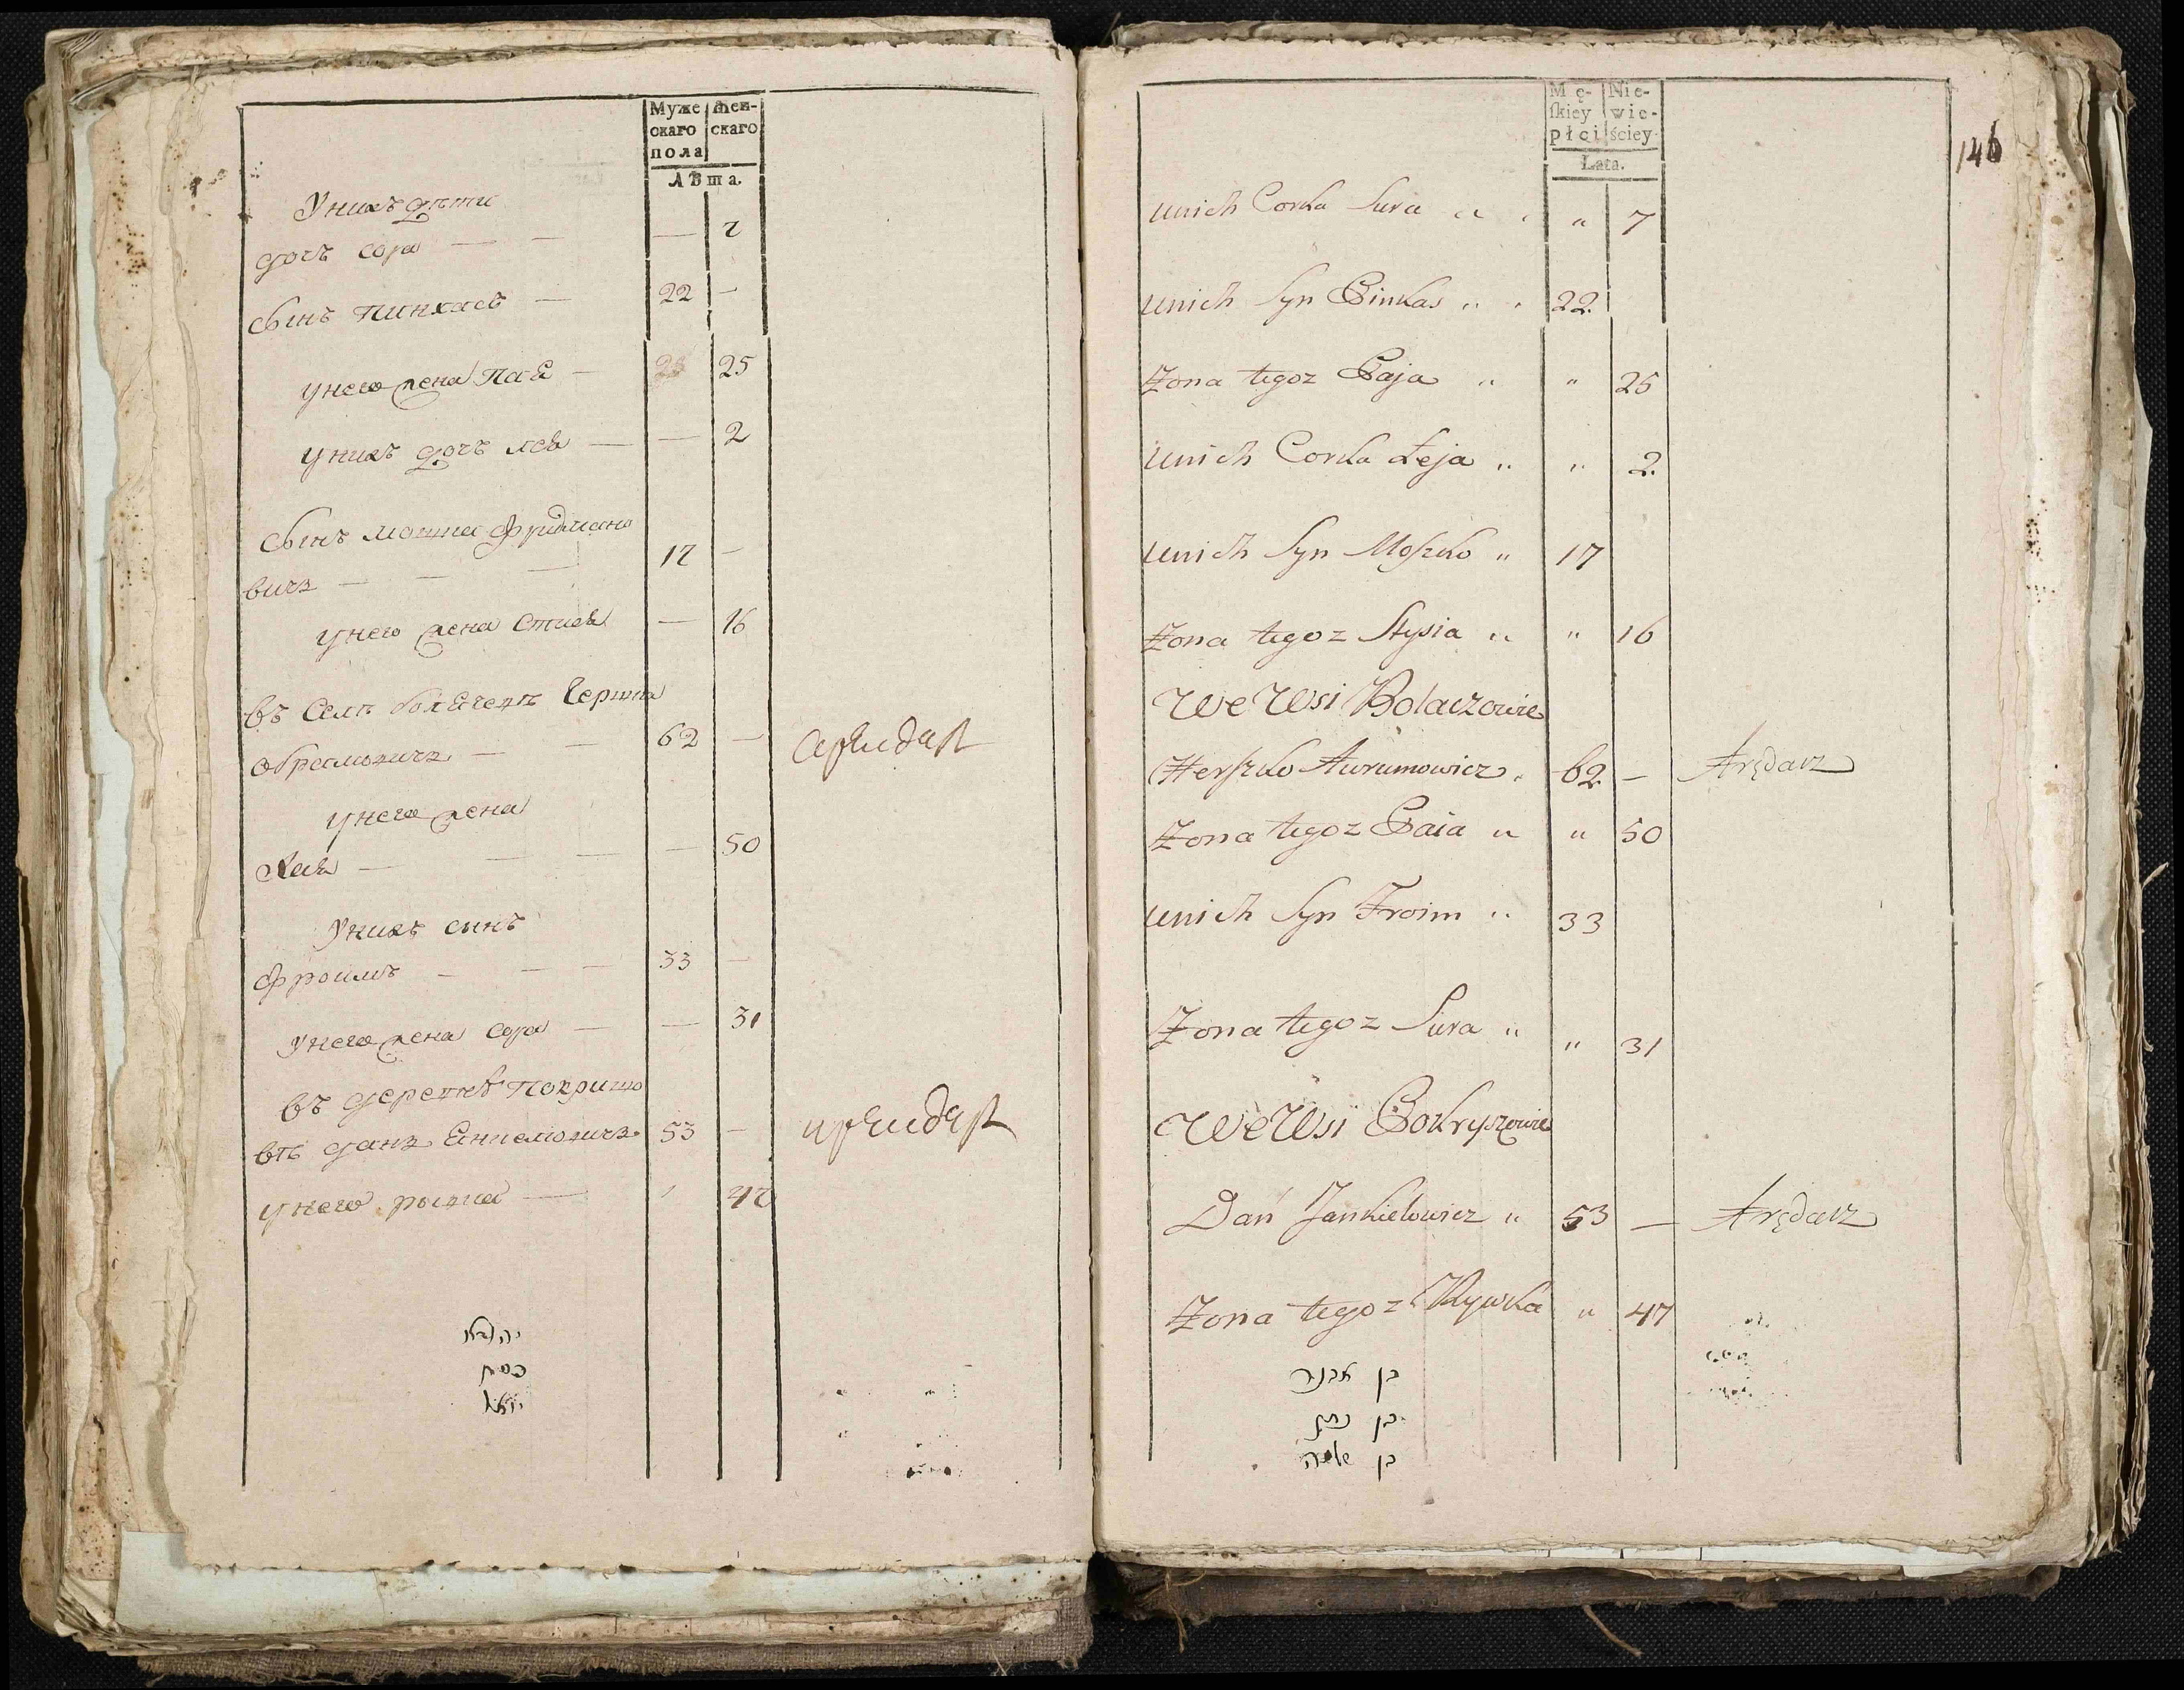 Муже
скаго
пола
Жен-
скаго
Лѣта.
Унихъ дѣти
дочь сора — — — 7
сынъ пинхасъ — 22 —
унего жена паѣ — 25
унихъ дочь леѣ — — 2
сынъ мошка фридмано
вичъ — — — 17 —
унего жена стисѣ — 16
въ селѣ болѣчевѣ Гершка
обрамовичъ — — 62 — арендаръ
унего жена
хаѣ — — — — 50
Унихъ сынъ
фроимъ — — — 33 —
унего жена сора — — 31
въ деревнѣ покришо
вѣ данъ Енкелювичъ 53 — арендаръ
унего рывка — 47
יהודא
פסח
יואל
Mę-
ſkiey
płci
Nie-
wie-
ściey
Lata.
146
unich Corka Sura " " " 7
unich Syn Pinkas " " 22
Zona tegoz Paja " " 25
unich Corka Łeja " " 2
unich Syn Moſzko " 17
Zona tegoz Stysia " " 16
We Wsi Bolaczowie
Herſzko Awrumowicz " 62 — Arędarz
Zona tegoz Paia " " 50
unich Syn Froim " 33
Zona tegoz Sura " " 31
We Wsi Pokryszowie
Dań Jankielowicz " 53 — Arędarz
Zona tegoz Rywka " 47
בן אבנר
בן נתן
בן שלמה